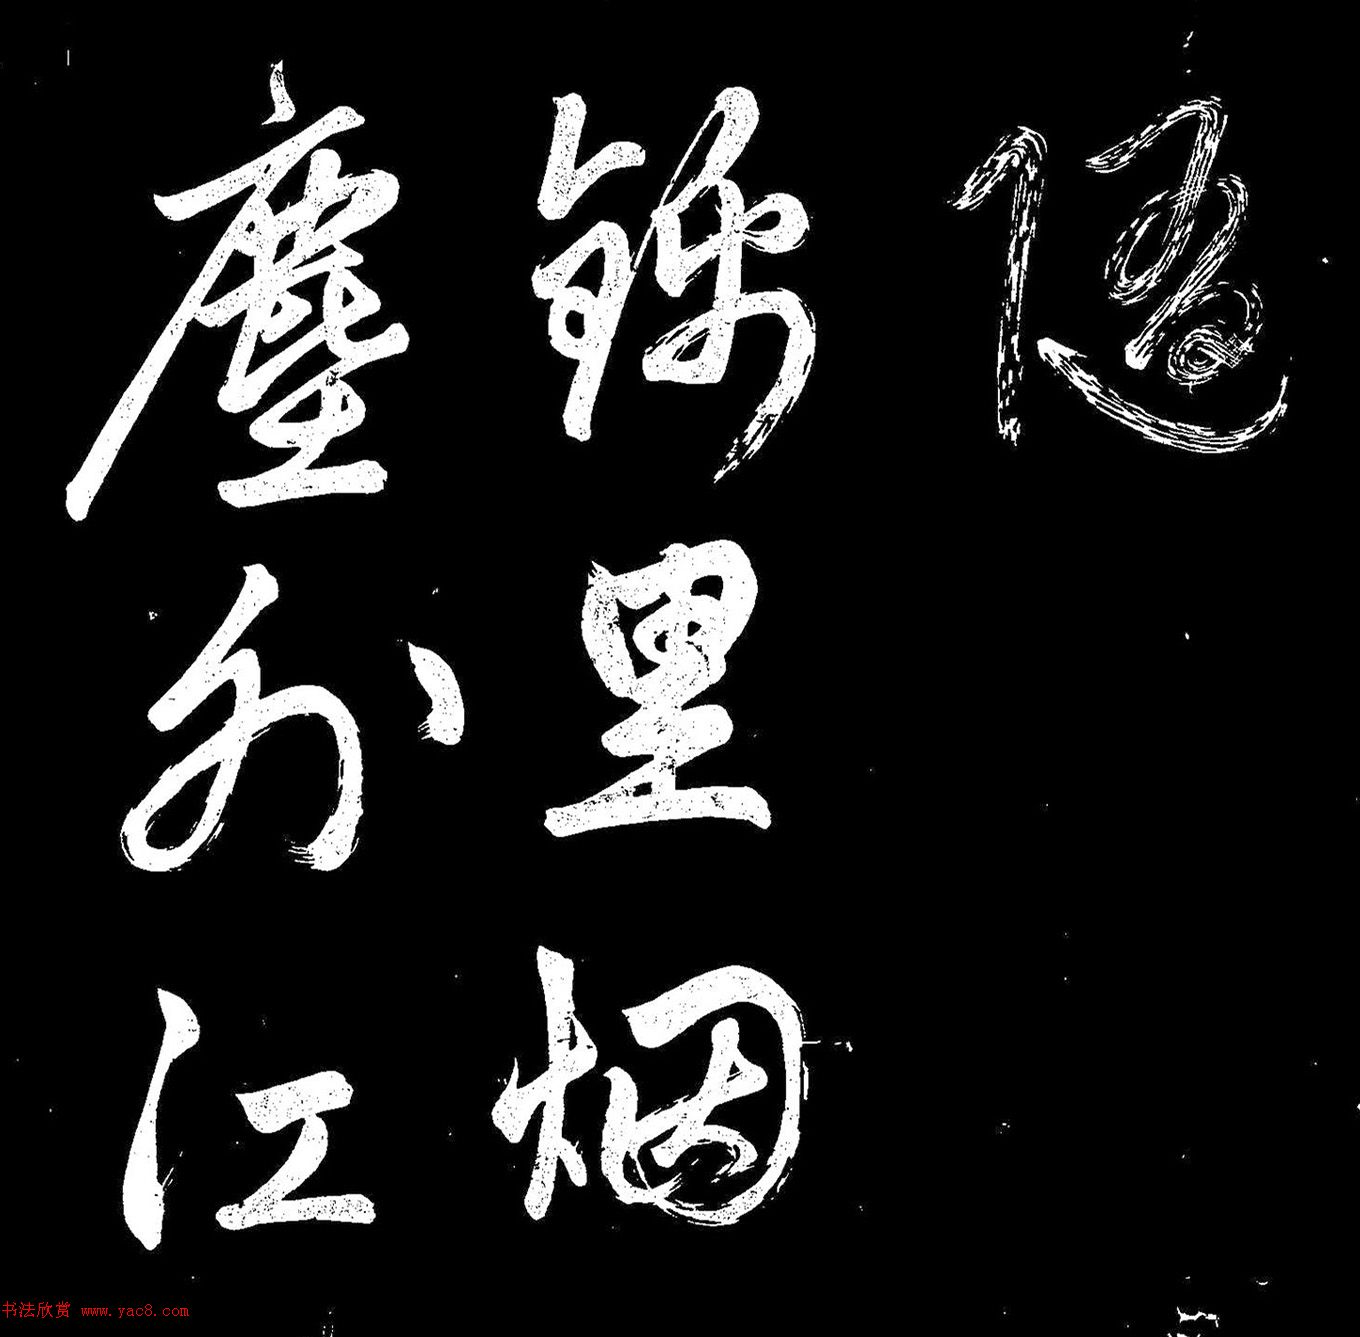 錦里烟
塵外江
书法欣赏 www.yac8.com